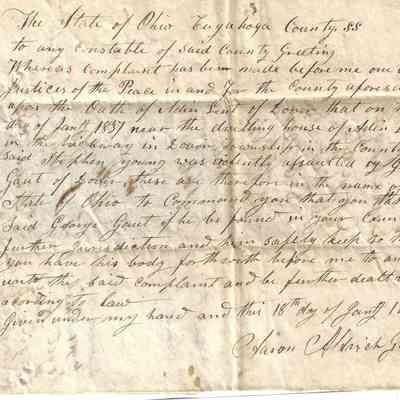 The State of Ohio Cuyahoga County SS
to any Constable of said County Greeting
Whereas Complaint has been made before me one
Justices of the Peace in and for the County aforesaid
upon the Oath of Aden of Dover that on
day of Janry 1837 near the dwelling house of Aden
in the highway in Dover township in the County
said Stephen young was violently assaulted by
Gaut of Dover these are therefore in the name
State of Ohio to Command you that you
said George Gaut if he be found in your Coun
further Jurisdiction and him safely keep so
you have his body forthwith before me to an
unto the said complaint and be further dealt
acording to Law
Given under my hand and this 18th day of Janry 1
Aaron Aldrich